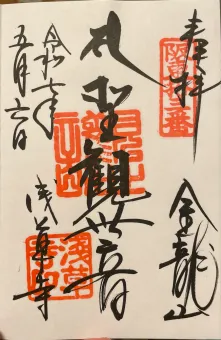 奉拝
阪東十三番
金龍山
聖観世音
令和七年
五月六日
浅草寺